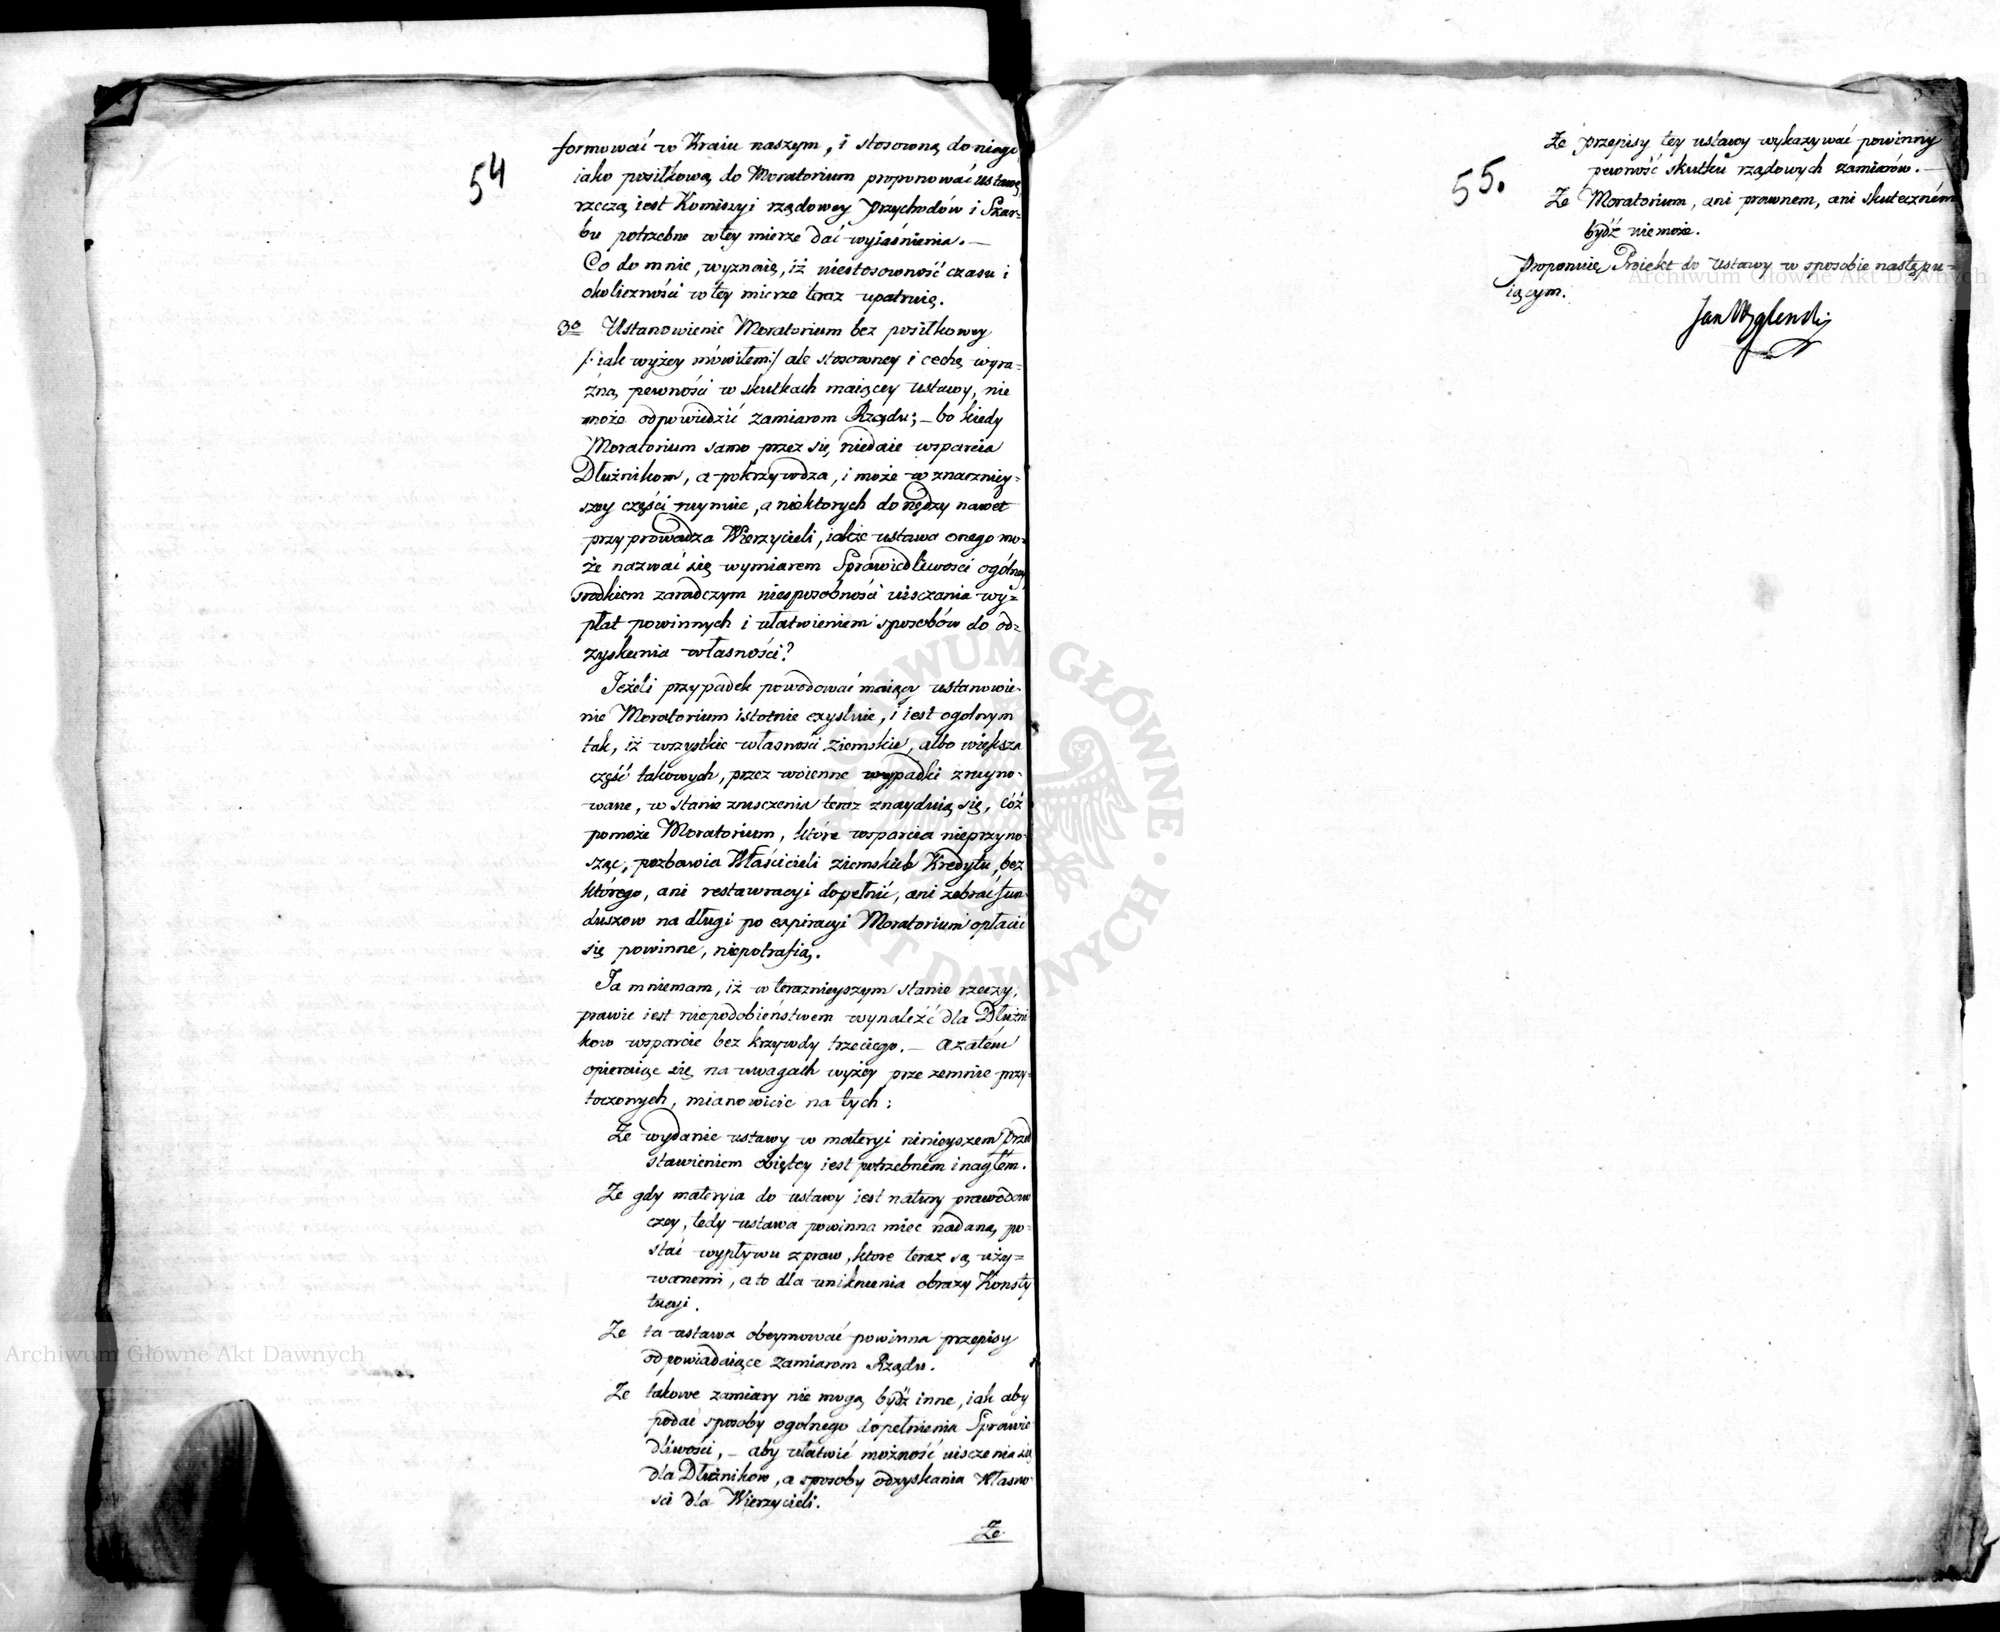 54
formować w Kraiu naszym, i stosowną do niego
iako posiłkową do Moratorium proponować ustawę,
rzeczą iest Kommiszyi rządowey Przychodów i Skar=
bu potrzebne w tey mierze dać wyiaśnienia. —
Co do mnie, wyznaię, iż niestosowność czasu i
okoliczności w tey mierze teraz upatruię.
3o Ustanowienie Moratorium bez posiłkowey
/: iak wyżey mówiłem :/ ale stosowney i cechę wyra=
źną pewności w skutkach maiącey ustawy, nie
może odpowiedzić zamiarom Rządu; — bo kiedy
Moratorium samo przez się niedaie wsparcia
Dłużnikom, a pokrzywdza, i może w znaczniey=
szey części ruynuie, a niektorych do nędzy nawet
przyprowadza Wierzycieli, iakże ustawa onego mo=
że nazwać się wymiarem Sprawiedliwości ogólney
srodkiem zaradczym niesposobności uisczania wy=
płat powinnych i ułatwieniem sposobów do od=
zyskania własności?
Jeżeli przypadek powodować maiący ustanowie=
nie Moratorium istotnie exystuie, i iest ogolnym
tak, iż wszystkie własności ziemskie, albo większa
część takowych, przez woienne wypadki zruyno=
wane, w stanie zniszczenia teraz znayduią się, cóż
pomoże Moratorium, które wsparcia nieprzyno=
sząc, pozbawia Właścicieli ziemskich Kredytu, bez
którego, ani restawracyi dopełnić, ani zebrać fun=
duszow na długi po expiracyi Moratorium opłacić
się powinne, niepotrafią.
Ja mniemam, iż w teraznieyszym stanie rzeczy,
prawie iest niepodobieństwem wynaleźć dla Dłużni
kow wsparcie bez krzywdy trzeciego. — A zatém
opieraiąc się na uwagach wyżey przezemnie przy=
toczonych, mianowicie na tych:
Że wydanie ustawy w materyi ninieyszem Przed
stawieniem obiętey iest potrzebném i nagłém.
Że gdy materyia do ustawy iest natury prawodaw
czey, tedy ustawa powinna miec nadaną po=
stać wypływu z praw, ktore teraz są uży=
wanemi, a to dla uniknienia obrazy Konsty
tucyi.
Że ta ustawa obeymować powinna przepisy
odpowiadaiące zamiarom Rządu.
Że takowe zamiary nie mogą bydź inne, iak aby
podać sposoby ogolnego dopełnienia Sprawie
dliwości, — aby ułatwić możność uisczenia się
dla Dłużników, a sposoby odzyskania Własno=
sci dla Wierzycieli.
Że
55.
Że przepisy tey ustawy wykazywać powinny
pewność skutku rządowych zamiarów. —
Że Moratorium, ani prawnem, ani skuteczném
bydź niemoże.
Proponuię Proiekt do Ustawy w sposobie następu=
iącym.
Archiwum Główne Akt Dawnych
ARCHIWUM GŁÓWNE AKT DAWNYCH
Archiwum Główne Akt Dawnych